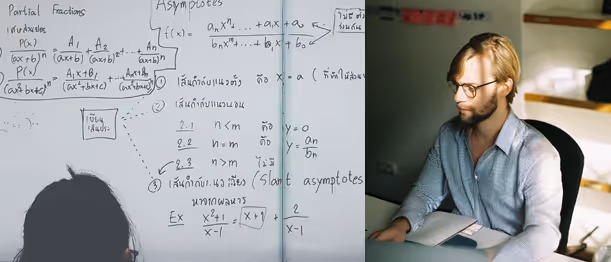 Partial Fractions
เศษส่วนย่อย
P(x)/(ax+b)^n = A₁/(ax+b) + A₂/(ax+b)² + ... + Aₙ/(ax+b)^n
P(x)/(ax²+bx+c)^n = A₁x+B₁/(ax²+bx+c) + ... Aₙx+Bₙ/(ax²+bx+c)^n
เขียน
เส้นประ
Asymptotes
f(x) = aₙxⁿ + ... + a₁x + a₀ / bₙxᵐ + ... + b₁x + b₀
① เส้นกำกับแนวตั้ง คือ x = a (
② เส้นกำกับแนวนอน
2.1 n < m คือ y = 0
2.2 n = m คือ y = aₙ/bₙ
2.3 n > m ไม่มี
③ เส้นกำกับแนวเฉียง (Slant asymptotes
หาจากผลหาร
Ex x²+1/x-1 = x+1 + 2/x-1